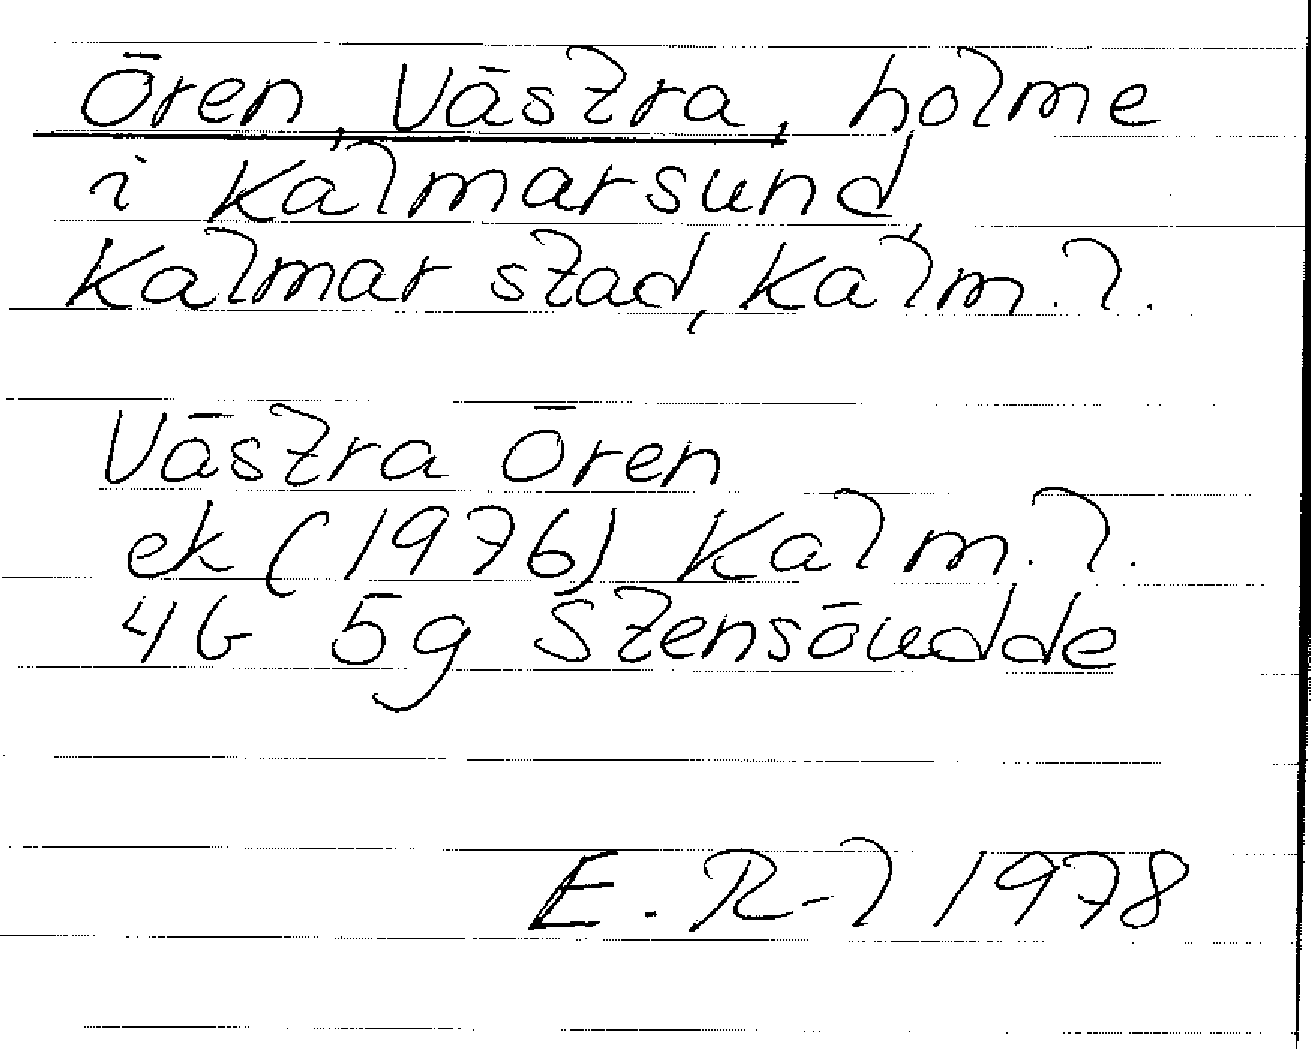 Ören, Västra, holme
i Kalmarsund,
Kalmar stad, Kalm. l.
Västra Ören
ek (1976) Kalm. l.
4G 5g Stensöudde
E. R-l 1978